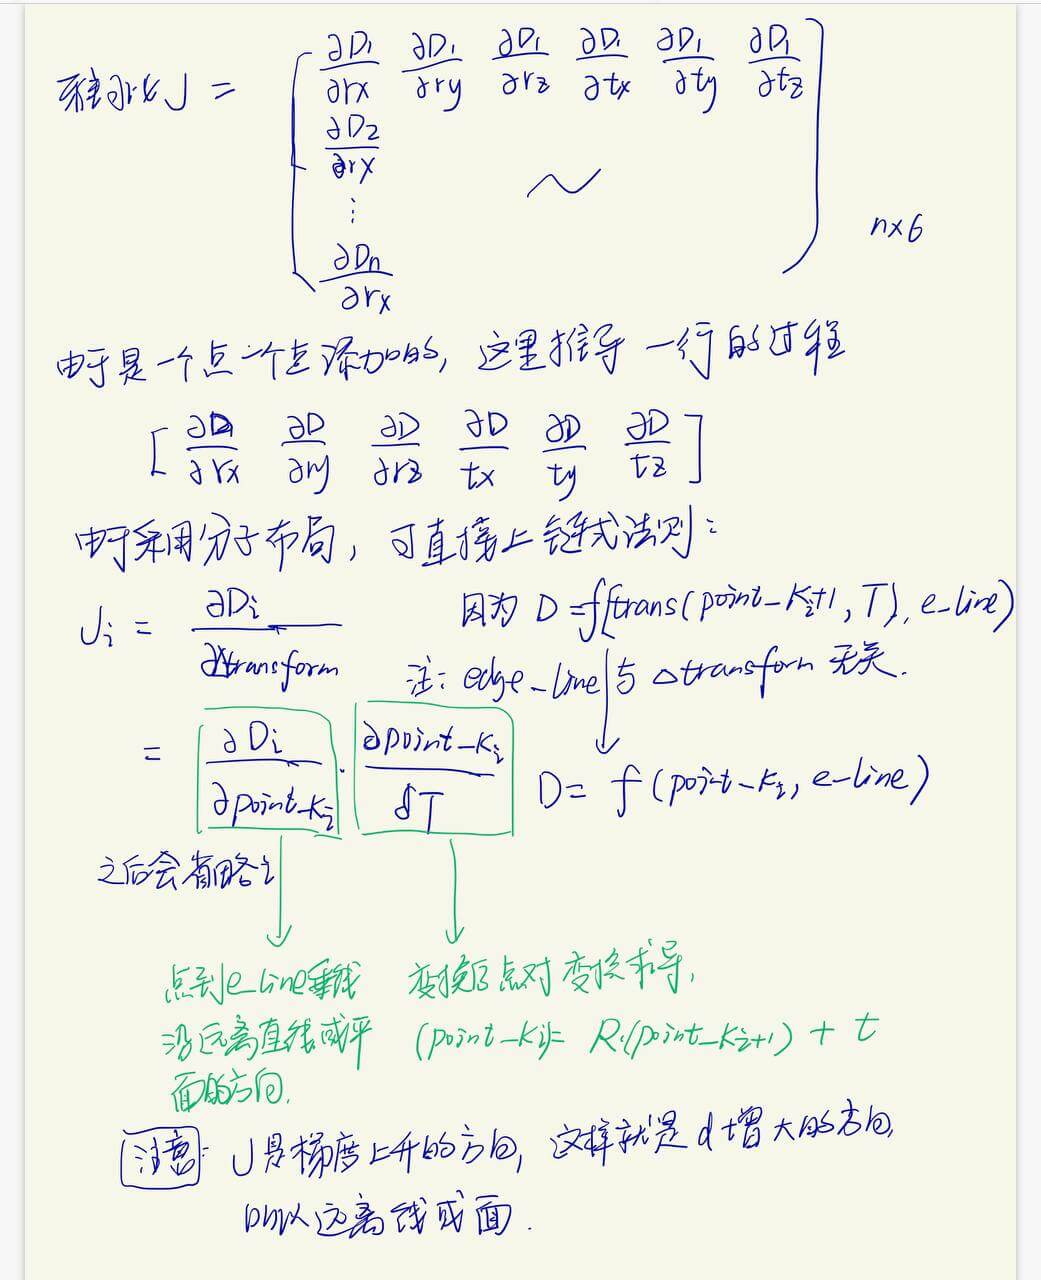 雅可比 J = [ ∂D₁/∂rx ∂D₁/∂ry ∂D₁/∂rz ∂D₁/∂tx ∂D₁/∂ty ∂D₁/∂tz
∂D₂/∂rx ~
⋮
∂Dn/∂rx ] n×6
由于是一个点一个点添加的, 这里推导一行的过程
[ ∂D/∂rx ∂D/∂ry ∂D/∂rz ∂D/tx ∂D/ty ∂D/tz ]
由于采用分子布局, 可直接上链式法则:
Jᵢ = ∂Dᵢ/∂transform 因为 D = f(trans(point-Kᵢ+1, T), e-line)
注: edge-line 与 △transform 无关.
= ∂Dᵢ/∂point-Kᵢ · ∂point-Kᵢ/∂T D = f(point-Kᵢ, e-line)
之后会省略 i
点到e-line垂线
沿远离直线或平
面的方向.
变换后点对变换求导,
(point-Ki)= R·(point-Ki+1) + t
注意: J是梯度上升的方向, 这样就是d增大的方向,
所以远离线或面.